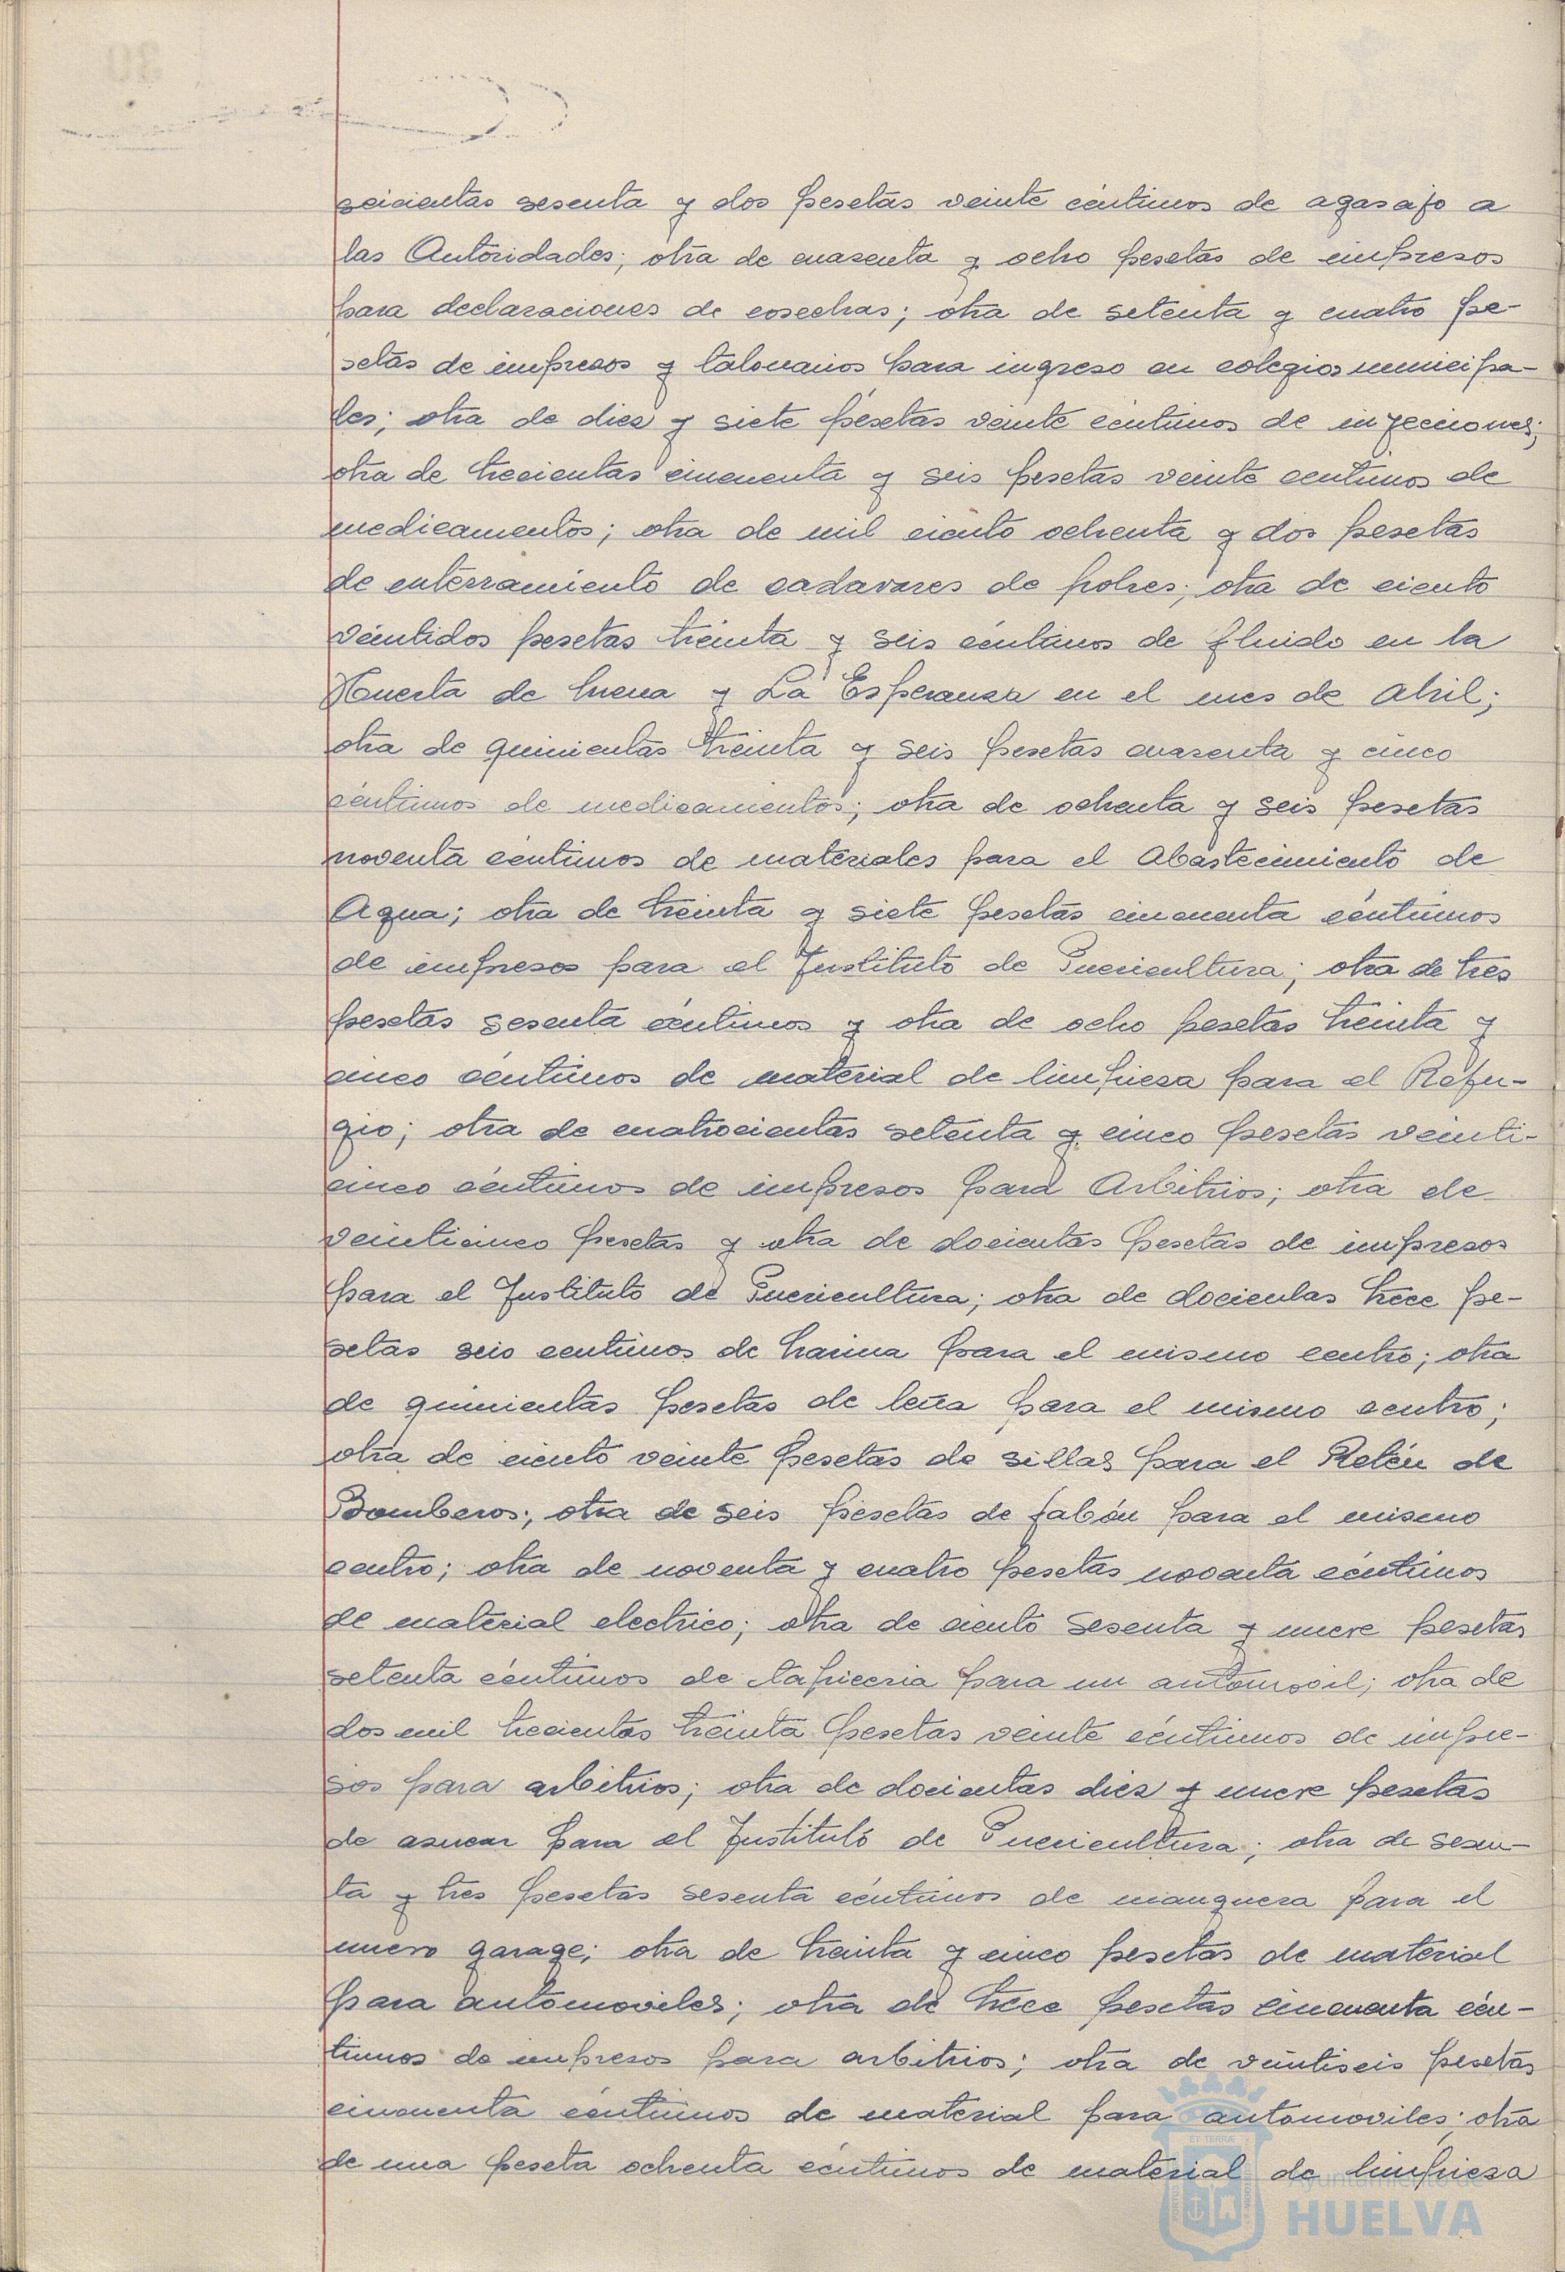 seicientas sesenta y dos pesetas veinte céntimos de agasajo a
las Autoridades; otra de cuarenta y ocho pesetas de impresos
para declaraciones de cosechas; otra de setenta y cuatro pe-
setas de impresos y talonarios para ingreso en colegios municipa-
les; otra de diez y siete pesetas veinte céntimos de inyecciones;
otra de trecientas cincuenta y seis pesetas veinte centimos de
medicamentos; otra de mil ciento ochenta y dos pesetas
de enterramiento de cadavares de pobres; otra de ciento
veintidos pesetas treinta y seis céntimos de fluido en la
Huerta de Mena y La Esperanza en el mes de Abril;
otra de quinientas treinta y seis pesetas cuarenta y cinco
céntimos de medicamentos; otra de ochenta y seis pesetas
noventa céntimos de materiales para el Abastecimiento de
Agua; otra de treinta y siete pesetas cincuenta céntimos
de impresos para el Instituto de Puericultura; otra de tres
pesetas sesenta céntimos y otra de ocho pesetas treinta y
cinco céntimos de material de limpieza para el Refu-
gio; otra de cuatrocientas setenta y cinco pesetas veinti-
cinco céntimos de impresos para Arbitrios; otra de
veinticinco pesetas y otra de docientas pesetas de impresos
para el Instituto de Puericultura; otra de docientas trece pe-
setas seis centimos de harina para el mismo centro; otra
de quinientas pesetas de leña para el mismo centro;
otra de ciento veinte pesetas de sillas para el Retén de
Bomberos; otra de seis pesetas de jabón para el mismo
centro; otra de noventa y cuatro pesetas noventa céntimos
de material electrico; otra de ciento sesenta y nueve pesetas
setenta céntimos de tapiceria para un automovil; otra de
dos mil trecientas treinta pesetas veinte céntimos de impre-
sos para arbitrios; otra de docientas diez y nueve pesetas
de azucar para el Instituto de Puericultura; otra de sesen-
ta y tres pesetas sesenta céntimos de manguera para el
nuevo garage; otra de treinta y cinco pesetas de material
para automoviles; otra de trece pesetas cincuenta cén-
timos de impresos para arbitrios; otra de veintiseis pesetas
cincuenta céntimos de material para automoviles; otra
de una peseta ochenta céntimos de material de limpieza
Ayuntamiento de
HUELVA